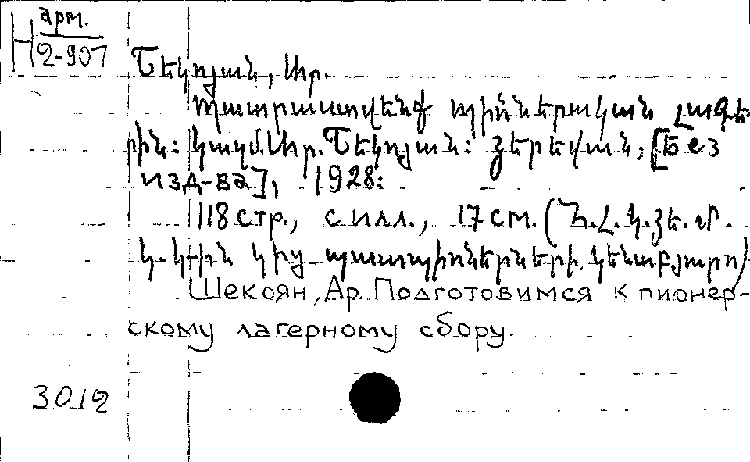 арм.
Н 2-907
Շեկոյան, Ար.
Պատրաստվենք պիոներական լագե-
րին: Կազմ. Ար. Շեկոյան: Յերեվան, [Без
изд-ва], 1928:
118 стр., с илл., 17 см. (Հ.Լ.Կ.Յե.Մ.
Կ. Կ-ին կից պատպիոներների կենտբյուրո)
Шекоян, Ар. Подготовимся к пионер-
скому лагерному сбору.
3019